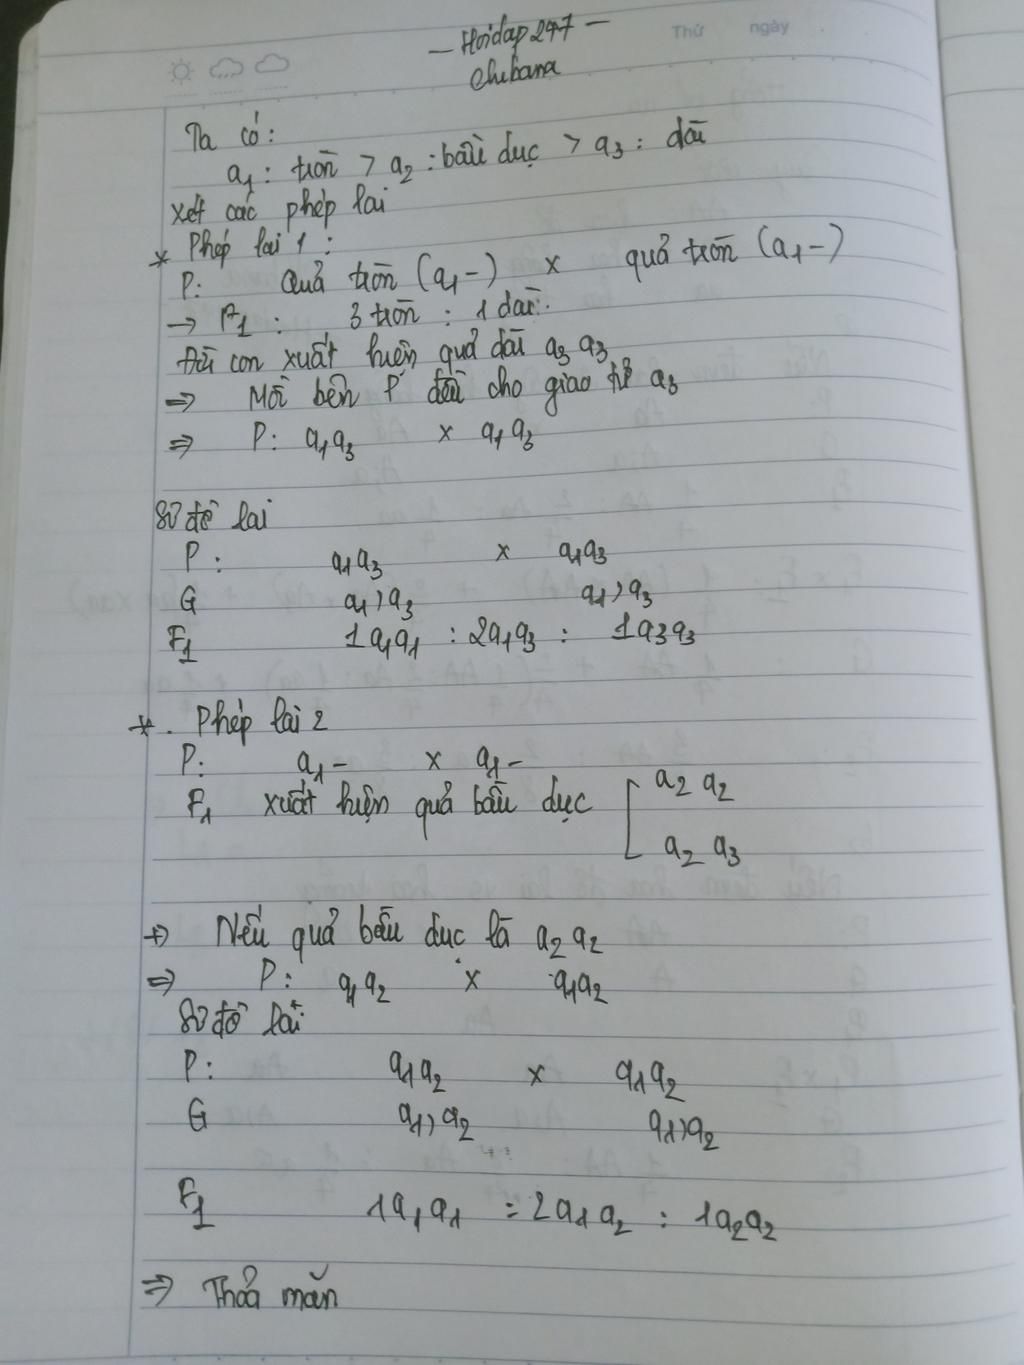 Thứ ngày
— Hoidap247 —
Chibana
Ta có:
a1: tròn > a2: bầu dục > a3: dài
xét các phép lai
* Phép lai 1:
P: Quả tròn (a1-) x quả tròn (a1-)
→ F1: 3 tròn : 1 dài.
Đời con xuất hiện quả dài a3 a3
⇒ Mỗi bên P đều cho giao tử a3
⇒ P: a1a3 x a1a3
Sơ đồ lai
P: a1a3 x a1a3
G a1, a3 a1, a3
F1 1a1a1 : 2a1a3 : 1a3a3
* . Phép lai 2
P: a1- x a1-
F1 xuất hiện quả bầu dục [ a2 a2
a2 a3
+) Nếu quả bầu dục là a2 a2
⇒ P: a1a2 x a1a2
Sơ đồ lai
P: a1a2 x a1a2
G a1, a2 a1, a2
F1 1a1a1 : 2a1a2 : 1a2a2
⇒ Thỏa mãn